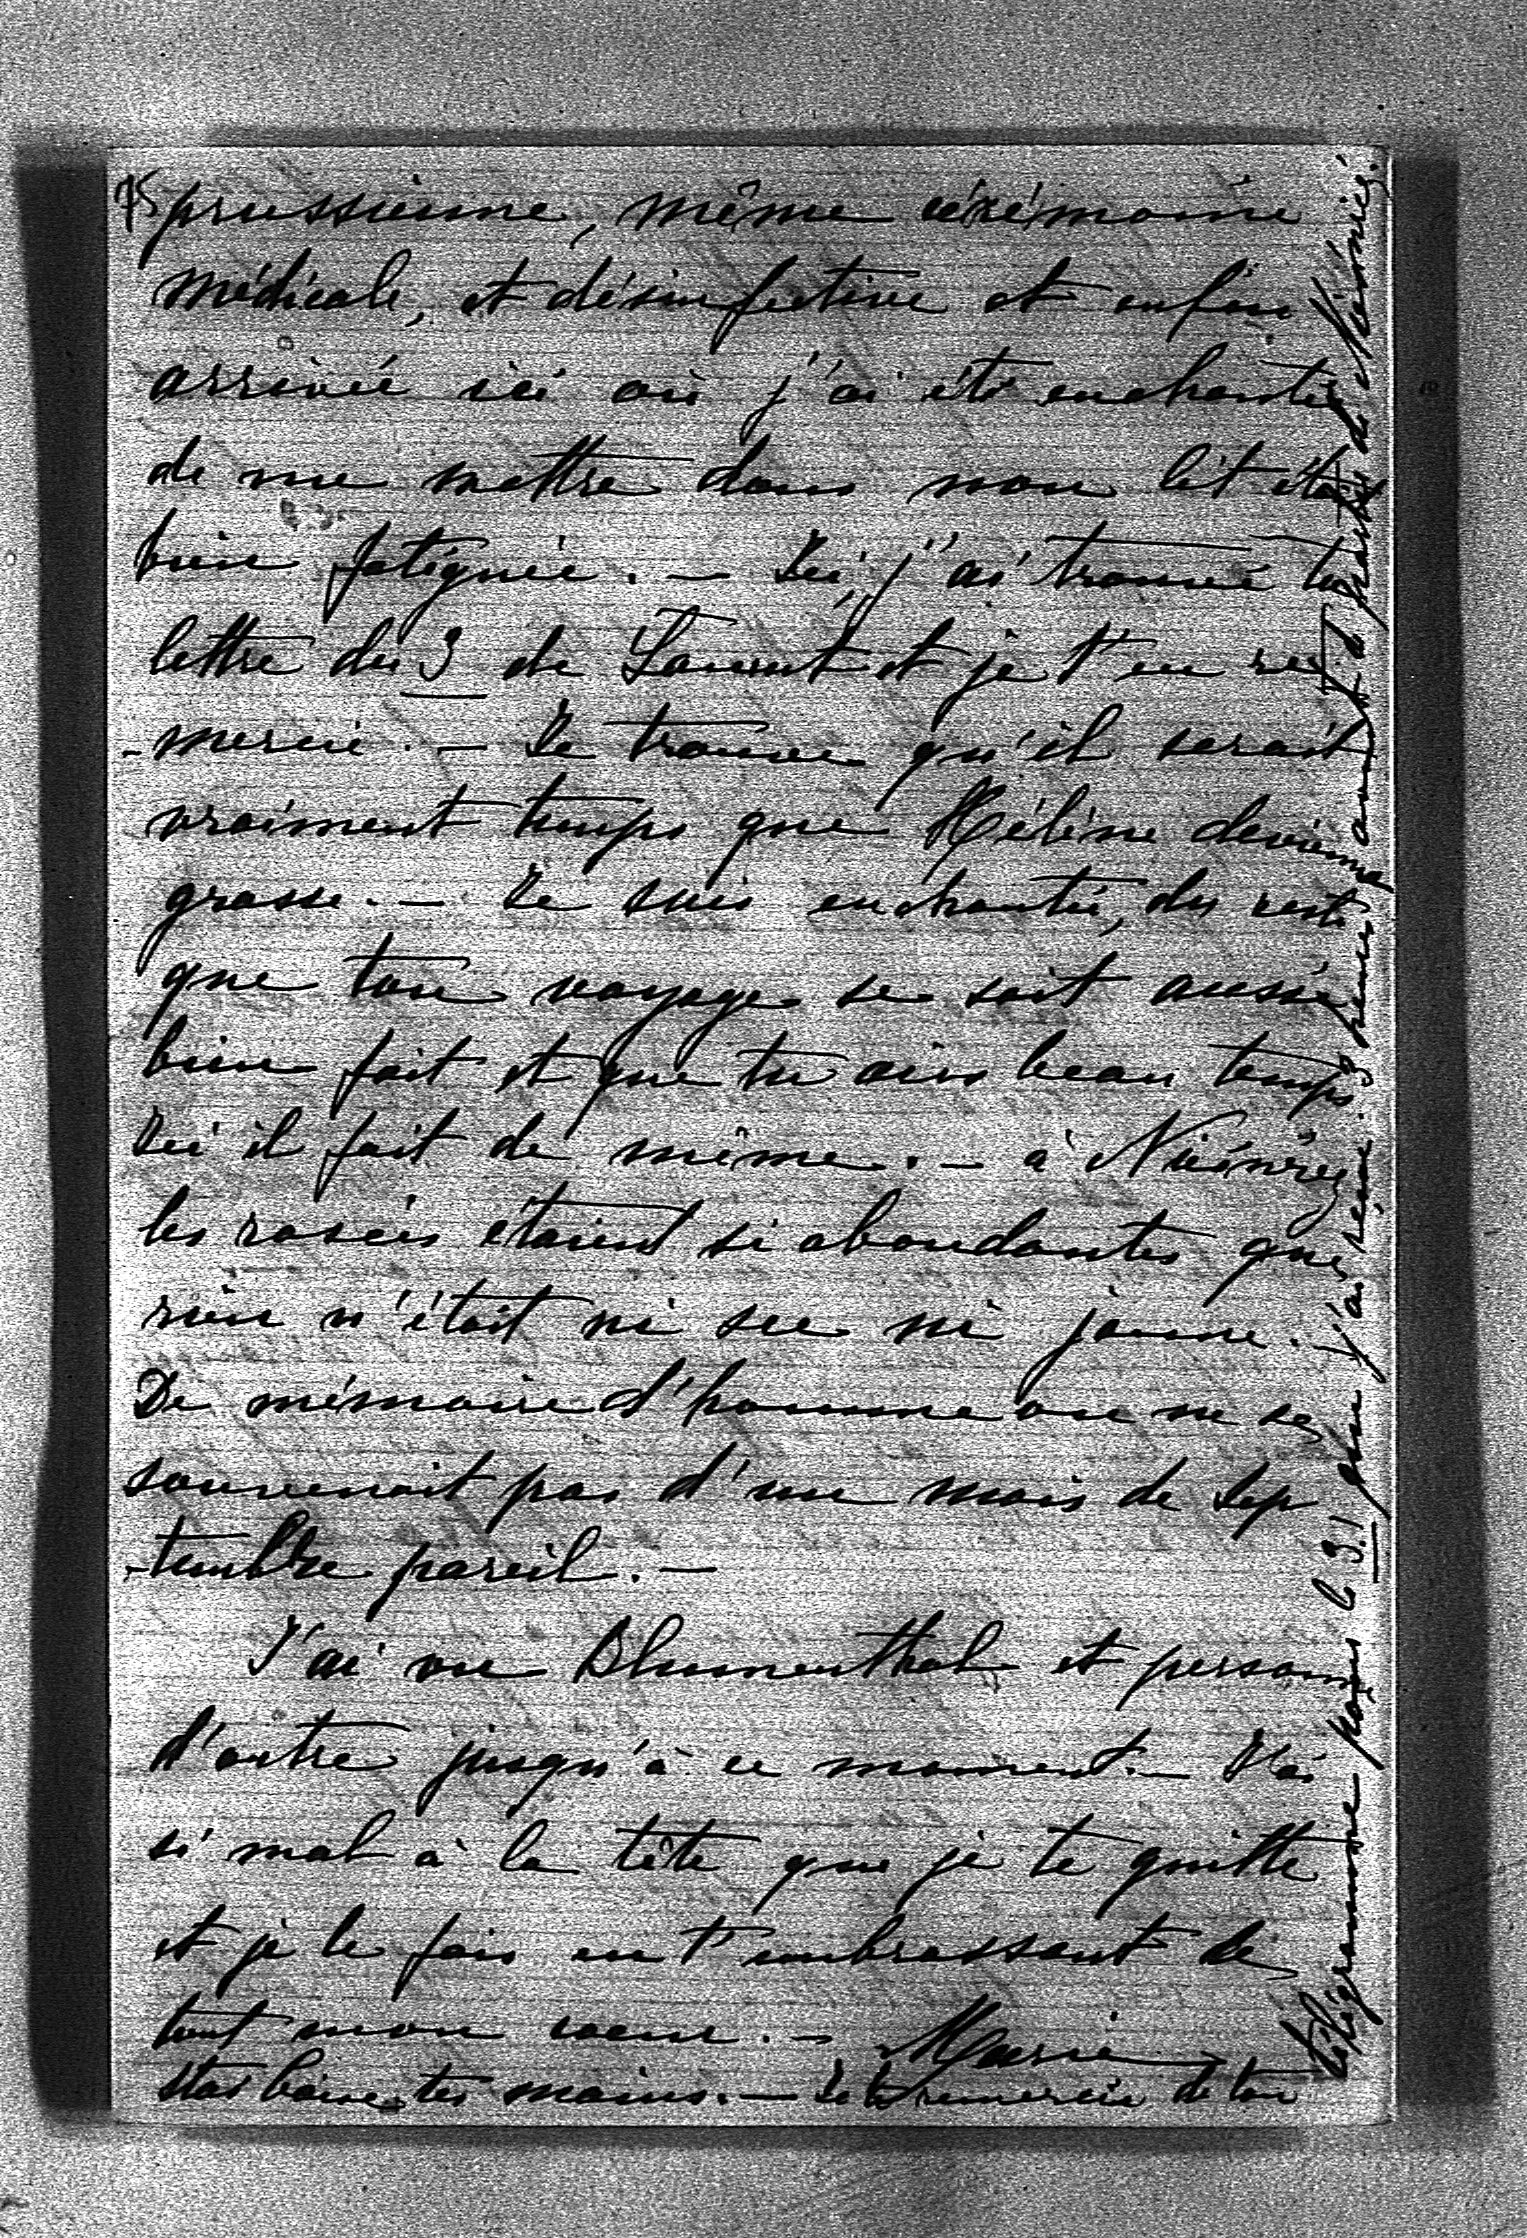 75
prussienne, même cérémonie
médicale, et désinfective et enfin
arrivée ici où j'ai été enchantée
de me mettre dans mon lit étant
bien fatiguée. — Ici, j'ai trouvé ta
lettre du 3 de Laurent et je t'en re
-mercie. — Je trouve qu'il serait
vraiment temps que Hélène devienne
grasse. — Je suis enchantée, du reste
que ton voyage se soit aussi
bien fait et que tu aies beau temps
Ici il fait de même. — à Niéśwież
les rosées étaient si abondantes que
rien n'était ni sec ni jaune.
De mémoire d'homme on ne se
souvenait pas d'un mois de Sep
-tembre pareil. —
J'ai vu Blumenthal et personne
d'autre jusqu'à ce moment. — J'ai
si mal à la tête que je te quitte
et je le fais en t'embrassant de
tout mon coeur. — Marie
Stas baise tes mains. — Je te remercie de ton
télégramme pour le 3! que j'ai reçu 3 heures avant de partir de Niéśwież.